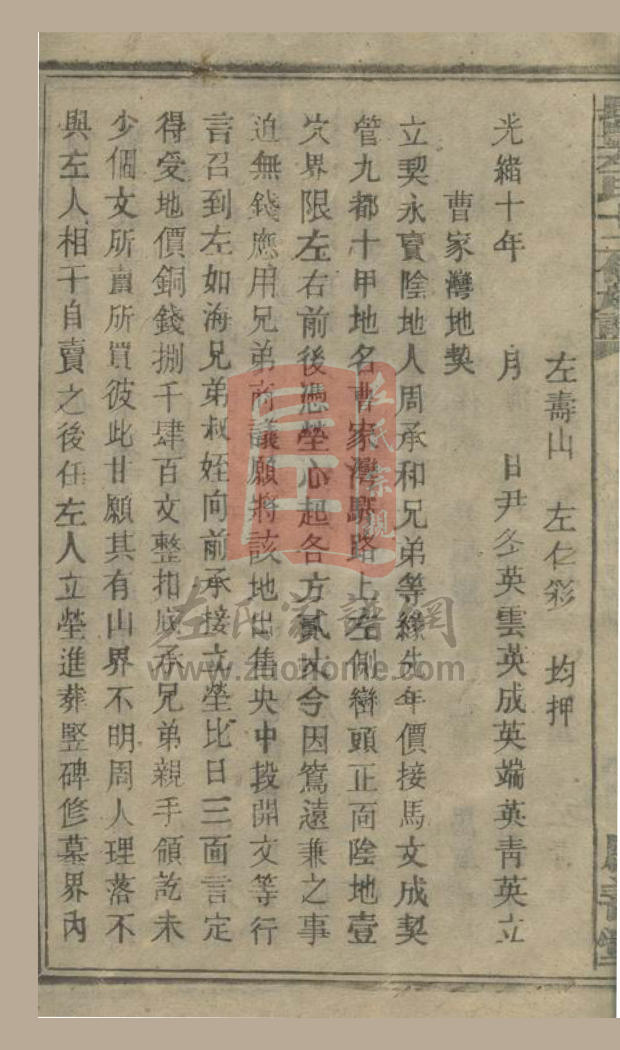 左壽山　左仁彩　均押
光緒十年　月　日尹冬英雲英成英端英青英立
曹家灣地契
立契永賣陰地人周承和兄弟等緣先年價接馬文成契
管九都十甲地名曹家灣驛路上左側巒頭正面陰地壹
穴界限左右前後憑塋心起各方貳丈今因窵遠兼之事
迫無錢應用兄弟商議願將該地出售央中段開文等行
言召到左如海兄弟叔姪向前承接立塋比日三面言定
得受地價銅錢捌千肆百文整扣底承兄弟親手領訖未
少個文所賣所買彼此甘願其有山界不明周人理落不
與左人相干自賣之後任左人立塋進葬竪碑修墓界內
左氏宗親
左氏家譜網
www.zuohome.com